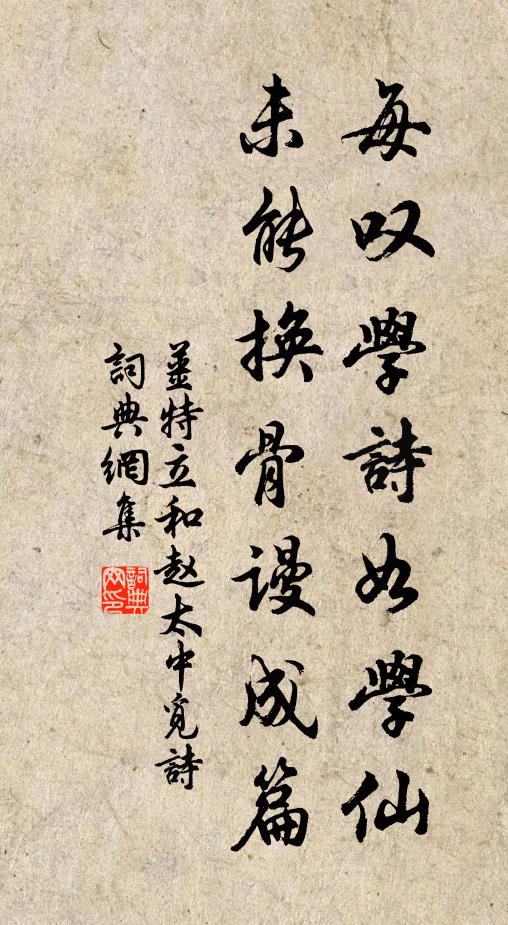 每叹學詩如學仙
未能換骨謾成篇
姜特立和赵太中覓詩
詞典網集
詞典
网印